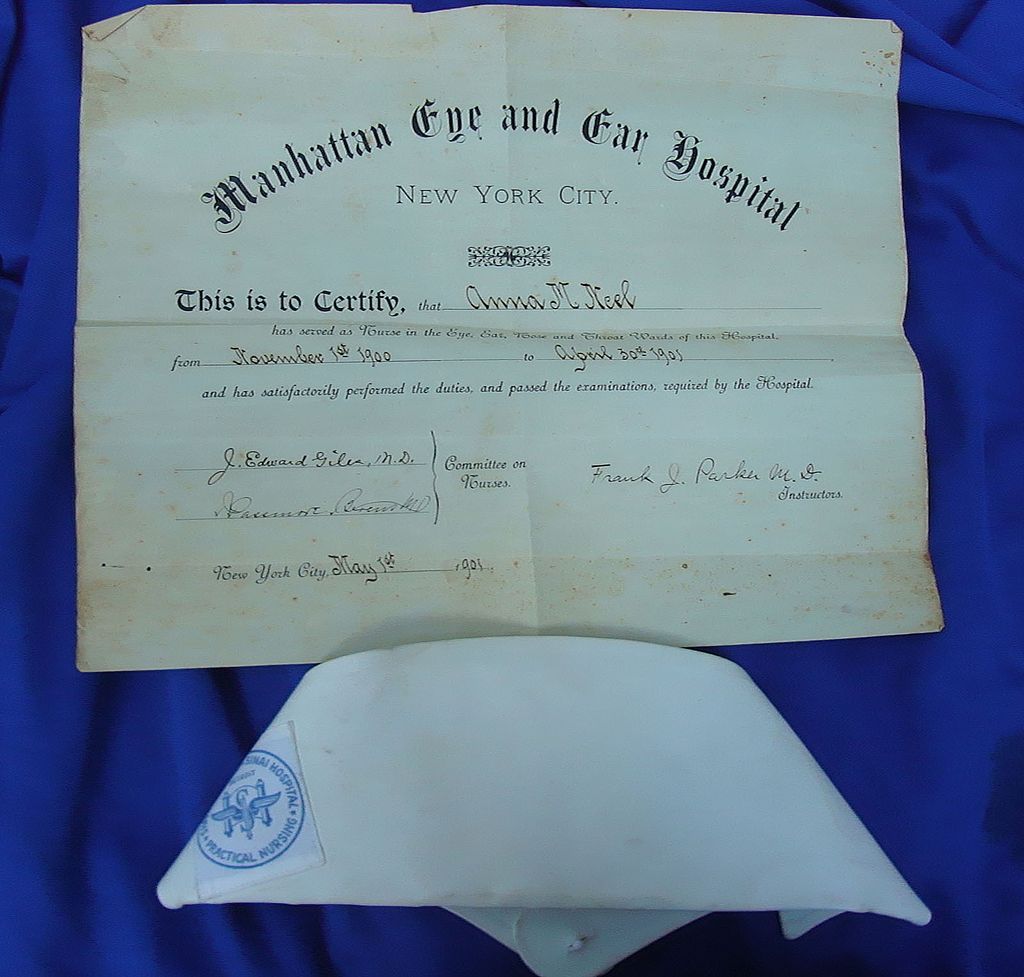 Manhattan Eye and Ear Hospital
NEW YORK CITY.
This is to Certify, that Anna M Neel
has served as Nurse in the Eye, Ear, Nose and Throat Wards of this Hospital.
from November 1st 1900 to April 30th 1901
and has satisfactorily performed the duties, and passed the examinations, required by the Hospital.
J. Edward Giles, M.D.
Committee on
Nurses.
Frank J. Parker M.D.
Instructors.
New York City, May 1st 1901
SINAI HOSPITAL
PRACTICAL NURSING